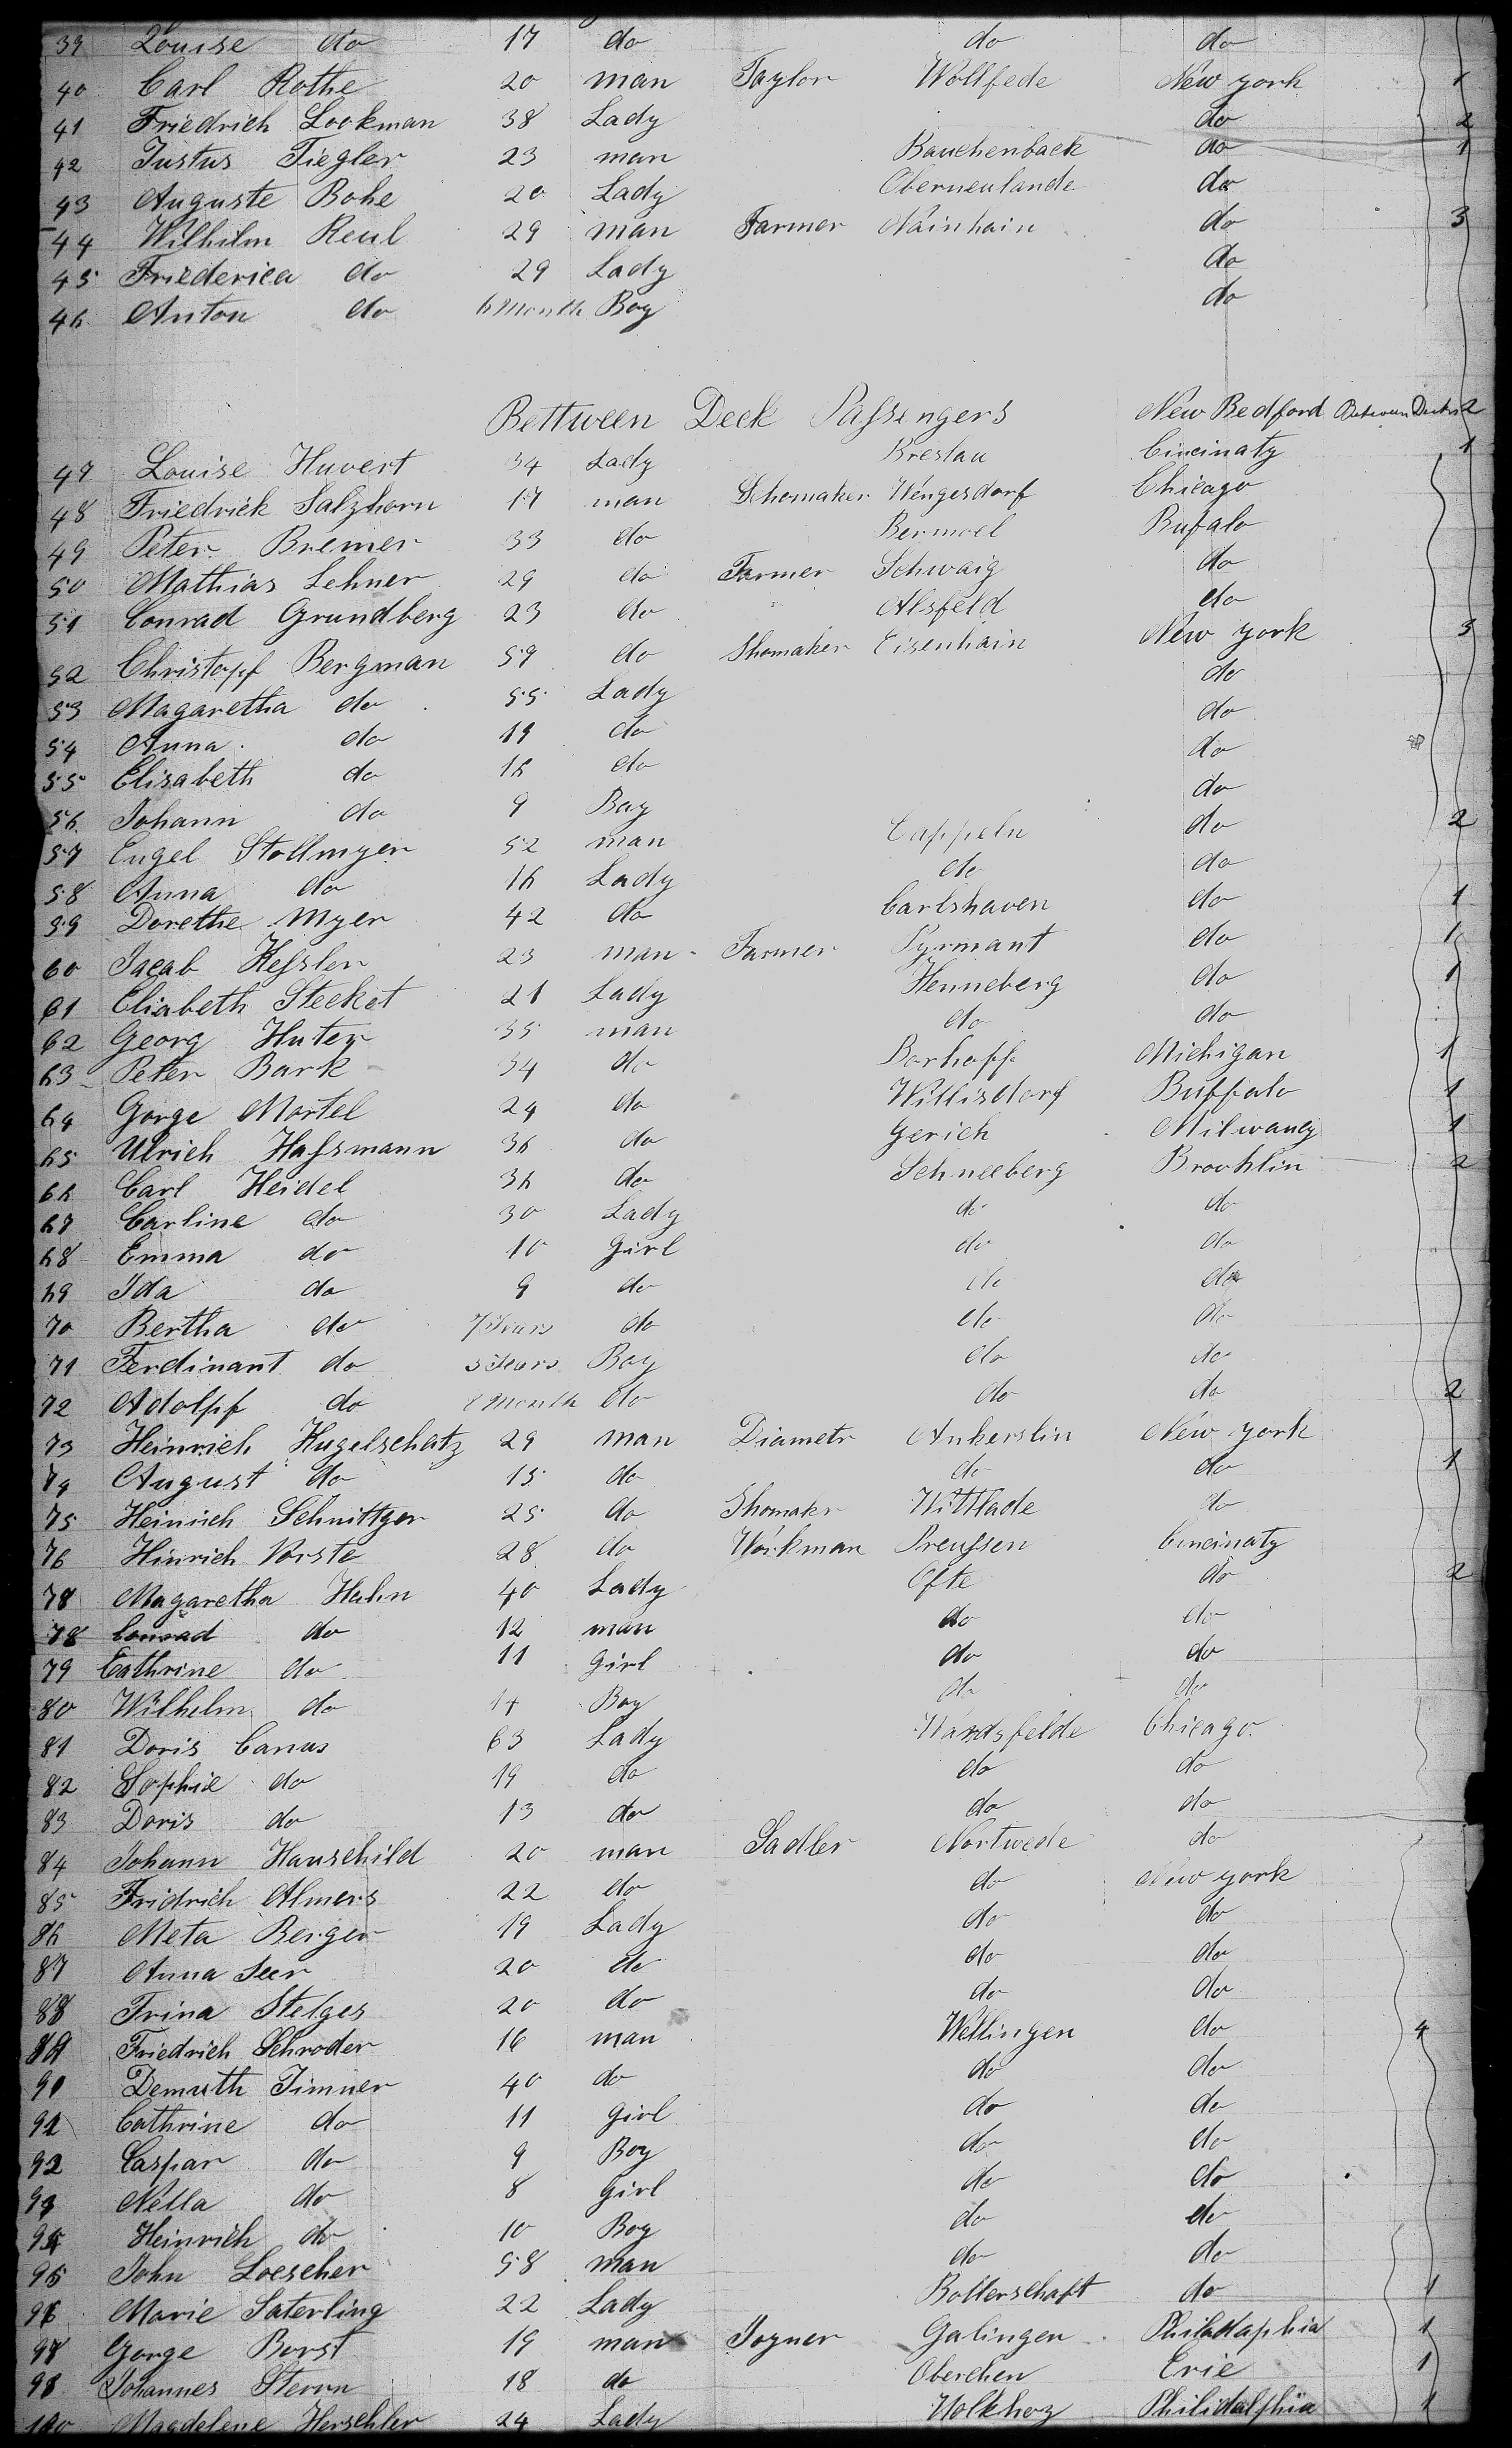 39 Louise do 17 do do do
40 Carl Rothe 20 man Taylor Wollfede New york 1
41 Friedrich Lookman 38 Lady do 2
42 Justus Tiegler 23 man Bauchenback do 1
43 Auguste Bohe 20 Lady Oberneulande do
44 Wilhilm Reul 29 man Farmer Nainhain do 3
45 Friederica do 29 Lady do
46 Anton do 6 Month Boy do
Bettween Deck Passengers New Bedford Between Decks 2
47 Louise Huvert 34 Lady Breslau Cincinaty 1
48 Friedrick Salzhorn 17 man Schomaker Wengesdorf Chicago
49 Peter Bremer 33 do Bermoel Bufalo
50 Mathias Lehner 29 do Farmer Schwaig do
51 Conrad Grundberg 23 do Alsfeld do
52 Christopf Bergman 59 do Shomaker Eisenhain New york 5
53 Magaretha do 55 Lady do
54 Anna do 19 do do
55 Elisabeth do 16 do do
56 Johann do 9 Boy do
57 Engel Stollmyer 52 man Cappeln do 2
58 Anna do 16 Lady do do
59 Dorethe Myer 42 do Carlshaven do 1
60 Jacab Hessler 23 man Farmer Pyrmant do 1
61 Eliabeth Steeket 21 Lady Henneberg do 1
62 Georg Huter 35 man do do
63 Peter Bark 34 do Borhoff Michigan 1
64 Gorge Martel 24 do Willisdorf Buffalo 1
65 Ulrich Hassmann 36 do Gerich Milwaucy 1
66 Carl Heidel 36 do Schneeberg Brooklin 2
67 Carline do 30 Lady do do
68 Emma do 10 Girl do do
69 Ida do 9 do do do
70 Bertha do 7 Years do do do
71 Ferdinant do 5 Years Boy do do
72 Adolpf do Month do do do 2
73 Heinrich Hugelschatz 29 man Diametr Ankerslin New york
74 August do 15 do do do 1
75 Heinrich Schnittger 25 do Shomaker Wittlade do
76 Hinrich Vorste 28 do Workman Preussen Cincinaty
78 Magaretha Hahn 40 Lady Ofte do 2
78 Conrad do 12 man do do
79 Cathrine do 11 Girl do do
80 Wilhelm do Boy do do
81 Doris Canus 63 Lady Wardsfelde Chicago
82 Sophie do 19 do do do
83 Doris do 13 do do do
84 Johann Hauschild 20 man Sadler Nortwede do
85 Fridrich Almers 22 do do New york
86 Meta Berger 19 Lady do do
87 Anna Seer 20 do do do
88 Trina Stelges 20 do do do
89 Friedrich Schroder 16 man Wellingen do 4
91 Demuth Timner 40 do do do
92 Cathrine do 11 Girl do do
92 Caspar do 9 Boy do do
93 Nella do 8 Girl do do
94 Heinrich do 10 Boy do do
95 John Loescher 58 man do do
96 Marie Saterling 22 Lady Bollerschaft do 1
97 Gorge Borst 19 man Joyner Galingen Philadaphia 1
98 Johannes Sterrn 18 do Oberehen Erie 1
100 Magdelene Herschler 24 Lady Holkhoz Philidalphia 1